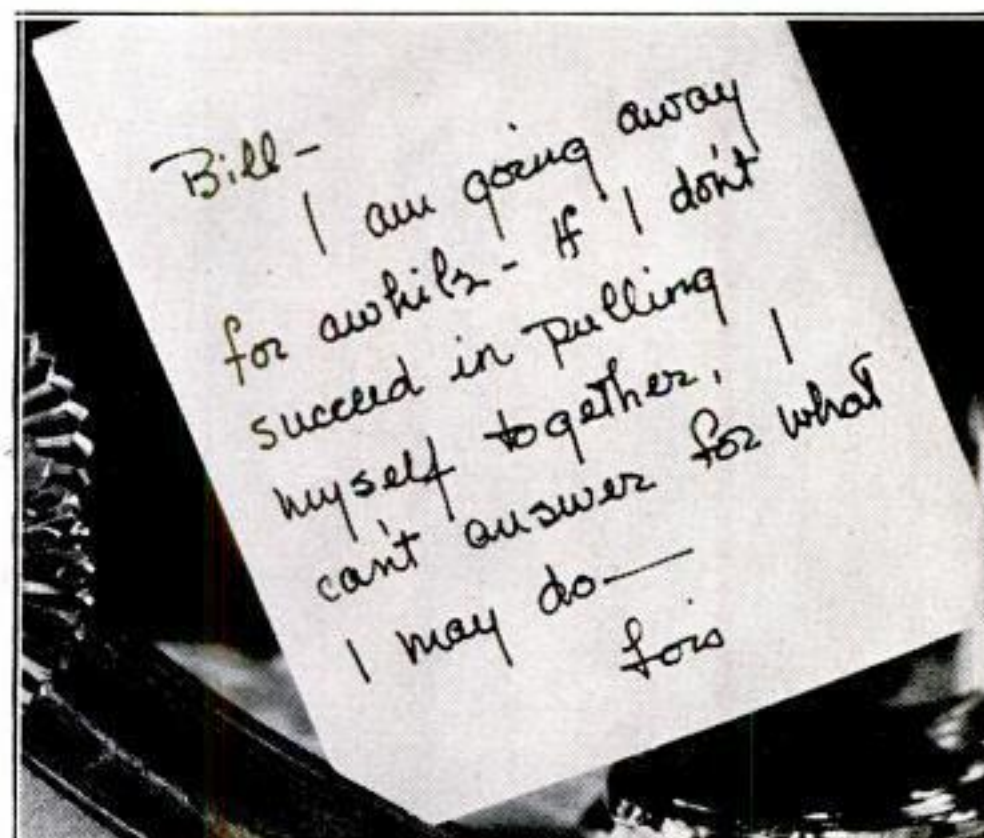 Bill-
I am going away
for awhile - If I don't
succeed in pulling
myself together, I
can't answer for what
I may do—
Lois